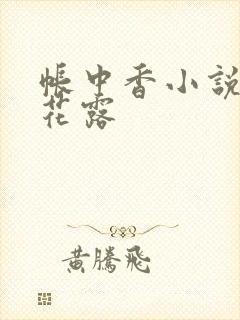 帳中香小說
花露
黃騰飛